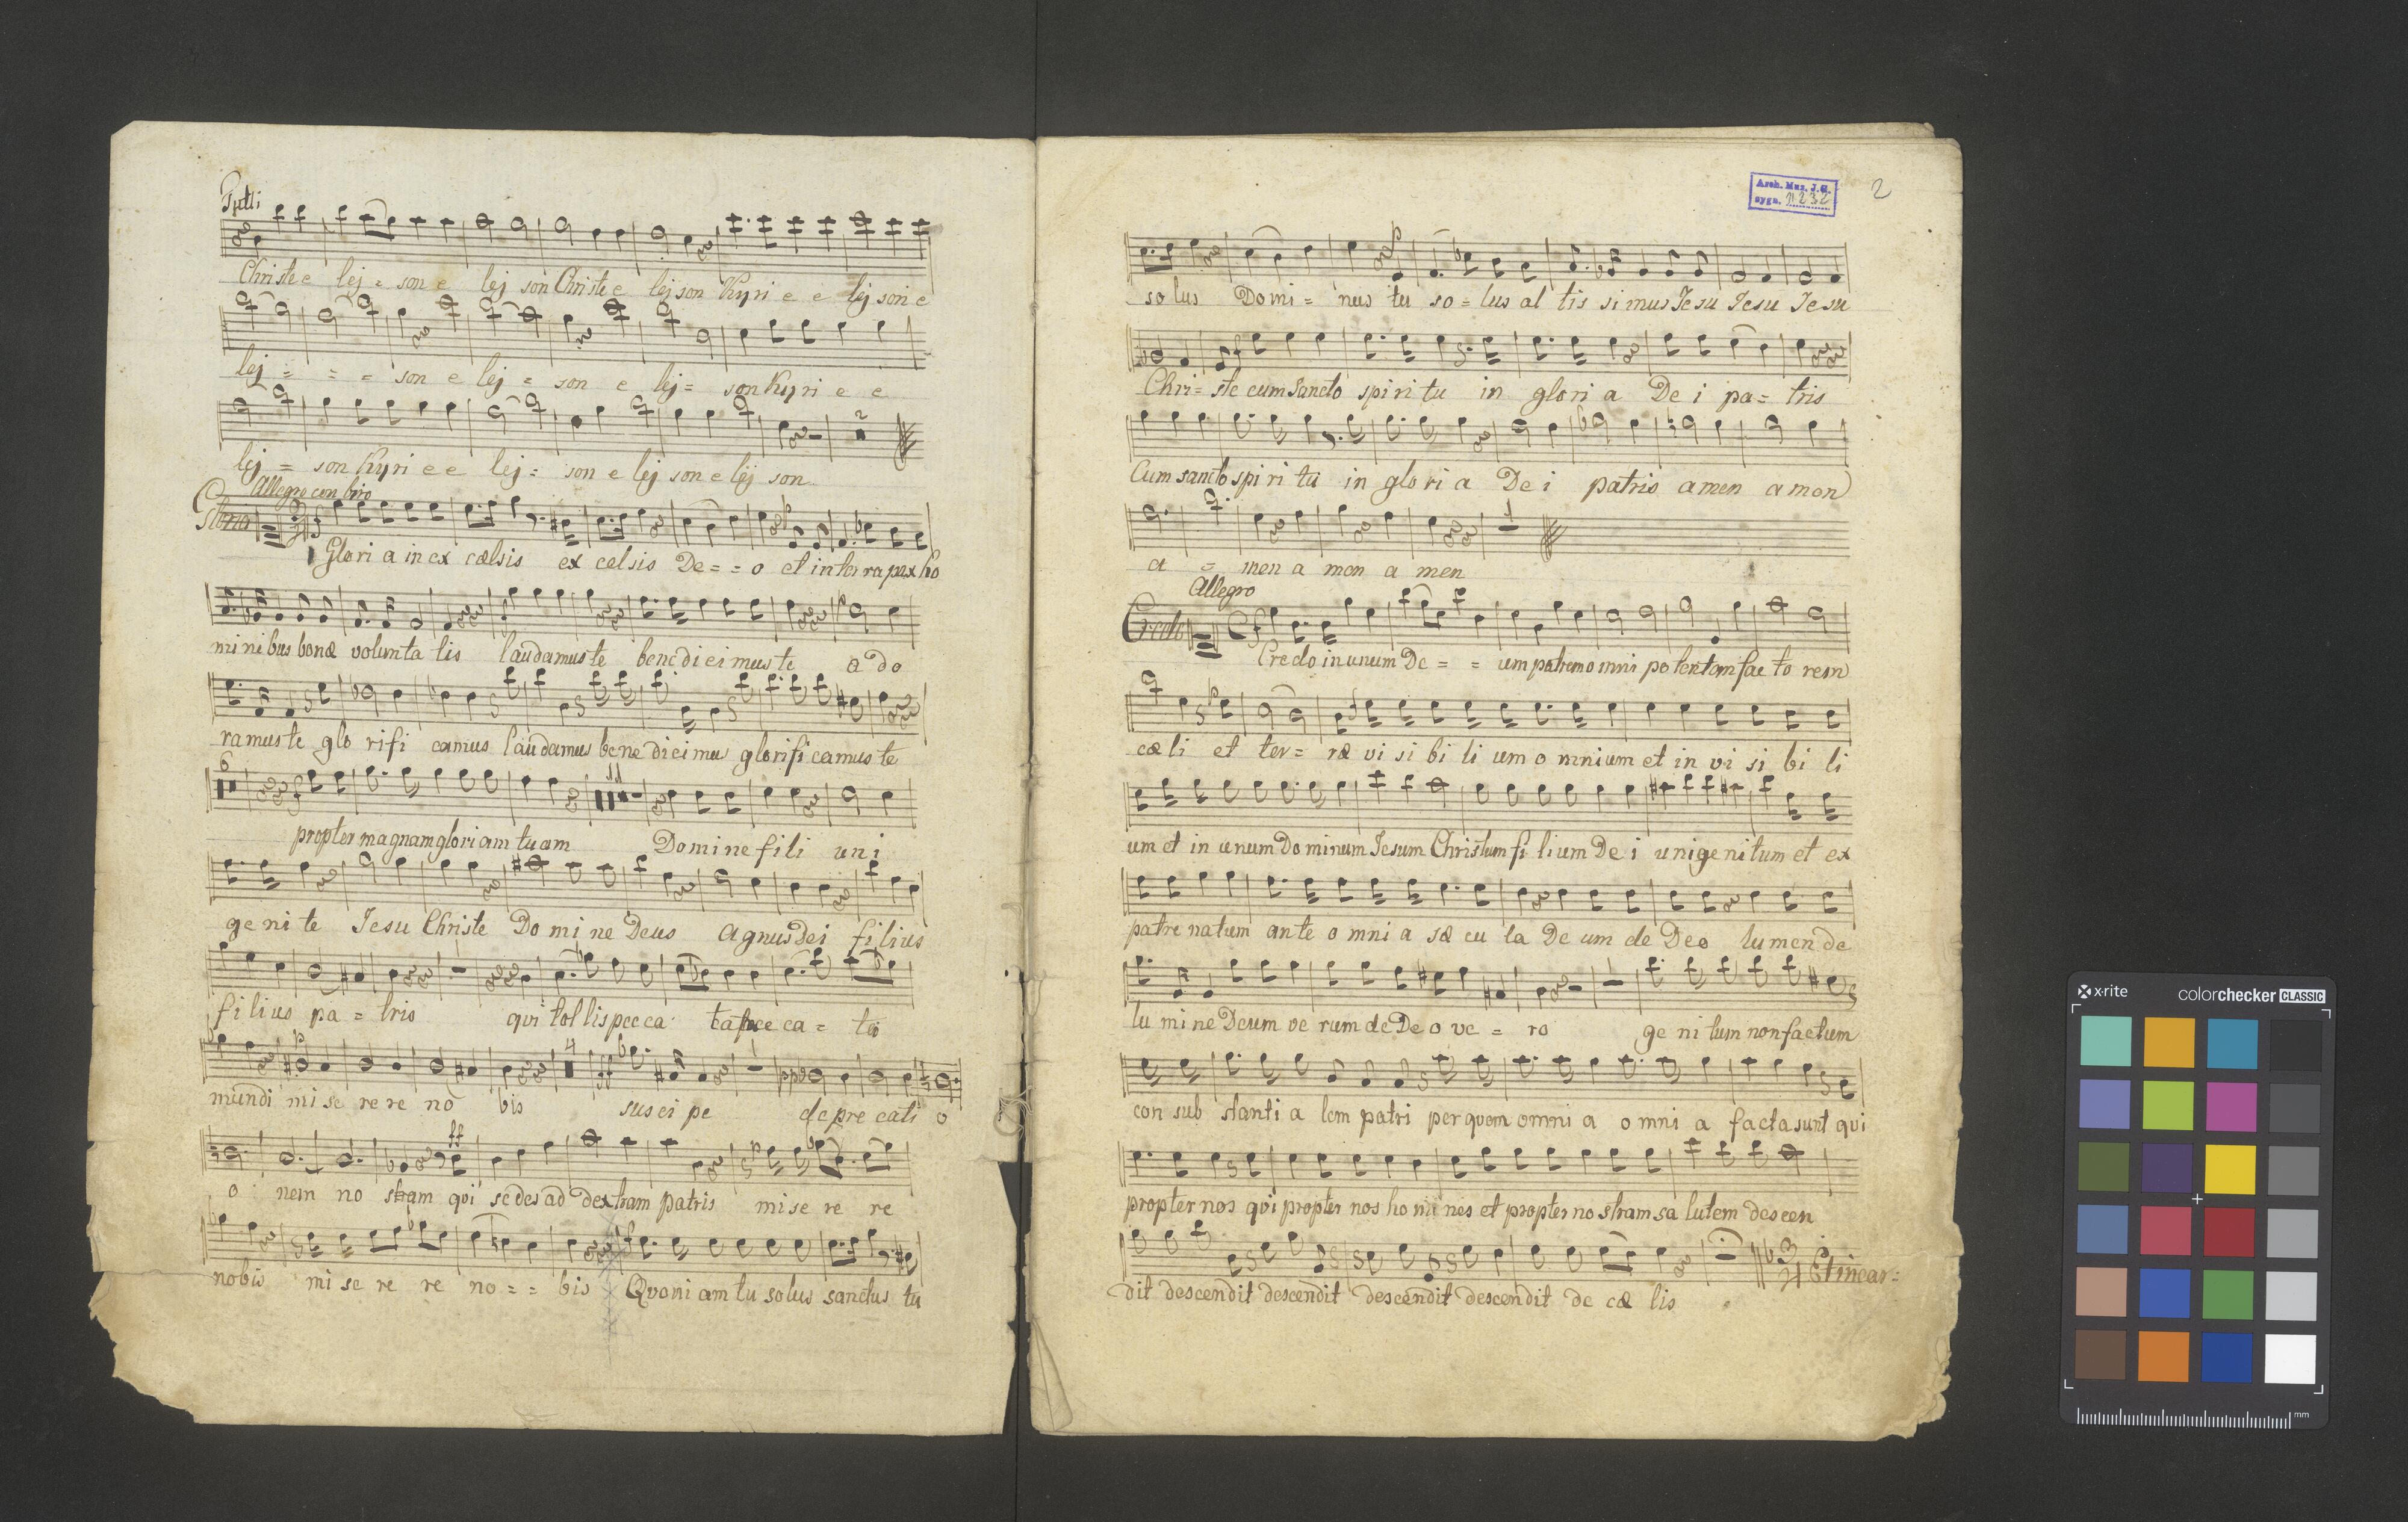 Tutti
Christe e lej = son e lej son Christe e lej son Kyri e e lej son e
lej = = = son e lej = son e lej = son Kyri e e
lej = son Kyri e e lej = son e lej son e lej son
Allegro con brio
Gloria
Glori a in ex cœlsis ex celsis De = = o et in ter ra pax ho
mi ni bus bonæ volunta tis laudamus te benedicimus te a do
ramus te glo rifi camus laudamus benedicimus glorificamus te
6 11
propter magnam gloriam tuam Domine fili uni
ge ni te Jesu Christe Do mi ne Deus agnus dei filius
filius pa = tris qui tollis pec ca ta pec ca = ta
4
mundi mi se re re no bis sus ci pe de pre cati o
ff
o nem no stram qui se des ad dextram patris mi se re re
nobis mi se re re no = = bis Quoni am tu solus sanctus tu
Arch. Muz. J.G.
sygn. II 232
2
so lus Domi = nus tu so = lus al tis si mus Jesu Jesu Jesu
Chri = ste cum Sancto spi ri tu in glori a De i pa = tris
Cum sancto spi ri tu in glo ri a De i patris amen amen
a = men a men a men
Allegro
Credo
Credo in unum De = = um patrem omni potentem fac to rem
cæli et ter = ræ vi si bi li um o mnium et in vi si bi li
um et in unum Do minum Jesum Christum fi lium De i unigenitum et ex
patre natum an te o mni a sæ cu la De um de Deo lumen de
lu mi ne Deum ve rum de De o ve = ro ge ni tum non factum
con sub stanti a lem patri per quem omni a o mni a facta sunt qui
propter nos qui propter nos ho mi nes et propter no stram sa lutem descen
dit descendit descendit descendit descendit de cæ lis
Et incar =
x-rite colorchecker CLASSIC
mm